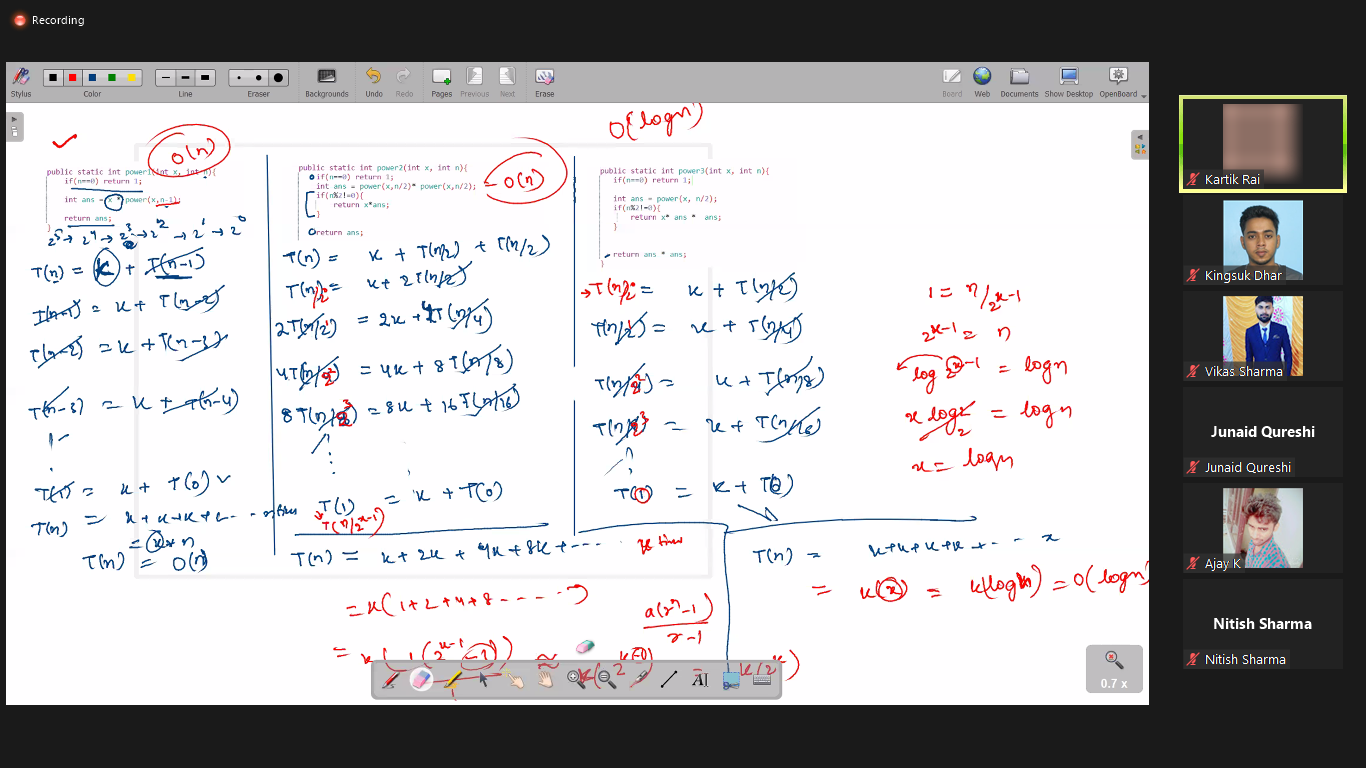 Recording
Stylus
Color
Line
Eraser
Backgrounds
Undo
Redo
Pages
Previous
Next
Erase
Board
Web
Documents
Show Desktop
OpenBoard
O(n)
public static int power1(int x, int n){
if(n==0) return 1;
int ans = x * power(x,n-1);
return ans;
}
2^5 → 2^4 → 2^3 → 2^2 → 2^1 → 2^0
T(n) = k + T(n-1)
T(n-1) = k + T(n-2)
T(n-2) = k + T(n-3)
T(n-3) = k + T(n-4)
T(1) = k + T(0)
T(n) = k+k+k+k+-- - n times
= k*n
T(n) = O(n)
public static int power2(int x, int n){
if(n==0) return 1;
int ans = power(x,n/2)* power(x,n/2);
if(n%2!=0){
return x*ans;
}
return ans;
}
O(n)
T(n) = k + T(n/2) + T(n/2)
T(n/2^0) = k + 2T(n/2)
2T(n/2^1) = 2k + 4T(n/4)
4T(n/2^2) = 4k + 8T(n/8)
8T(n/2^3) = 8k + 16T(n/16)
T(1) = k + T(0)
T(n/2^x-1)
T(n) = k + 2k + 4k + 8k + ---- x times
= k(1+2+4+8-----)
a(r^n-1)
r-1
O(logn)
public static int power3(int x, int n){
if(n==0) return 1;
int ans = power(x, n/2);
if(n%2!=0){
return x* ans * ans;
}
return ans * ans;
}
T(n/2^0) = k + T(n/2)
T(n/2^1) = k + T(n/4)
T(n/2^2) = k + T(n/8)
T(n/2^3) = k + T(n/16)
T(1) = k + T(0)
1 = n/2^x-1
2^x-1 = n
log 2^x-1 = logn
x log 2 = logn
x = logn
T(n) = k+k+k+k+-- - x
= k(x) = k(logn) = O(logn)
0.7 x
Kartik Rai
Kingsuk Dhar
Vikas Sharma
Junaid Qureshi
Junaid Qureshi
Ajay K
Nitish Sharma
Nitish Sharma